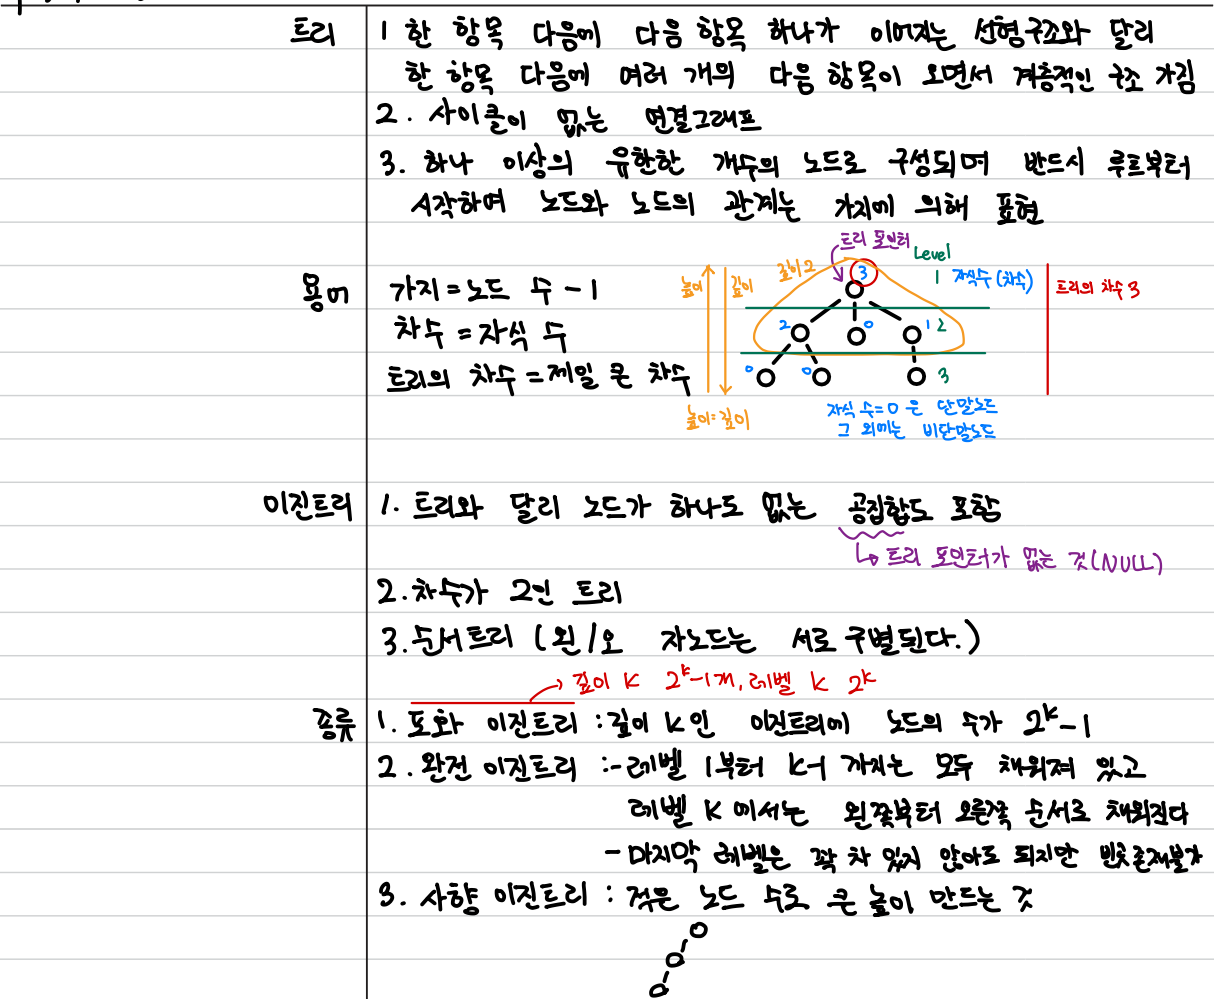 트리
1 한 항목 다음에 다음 항목 하나가 이어지는 선형구조와 달리
한 항목 다음에 여러 개의 다음 항목이 오면서 계층적인 구조 가짐
2. 사이클이 없는 연결그래프
3. 하나 이상의 유한한 개수의 노드로 구성되며 반드시 루트부터
시작하여 노드와 노드의 관계는 가지에 의해 표현
용어
가지=노드 수-1
차수=자식 수
트리의 차수=제일 큰 차수
트리 포인터
Level
높이
깊이
깊이 2
3
1
자식수(차수)
트리의 차수 3
2
0
1
2
0
0
3
높이=깊이
자식 수=0 은 단말노드
그 외에는 비단말노드
이진트리
1. 트리와 달리 노드가 하나도 없는 공집합도 포함
↳ 트리 포인터가 없는 것(NULL)
2. 차수가 2인 트리
3. 순서트리 (왼/오 자노드는 서로 구별된다.)
→ 깊이 k 2^k-1개, 레벨 k 2^k
종류
1. 포화 이진트리 : 깊이 k인 이진트리에 노드의 수가 2^k-1
2. 완전 이진트리 :- 레벨 1부터 k-1 까지는 모두 채워져 있고
레벨 k 에서는 왼쪽부터 오른쪽 순서로 채워진다
- 마지막 레벨은 꽉 차 있지 않아도 되지만 빈곳존재불가
3. 사향 이진트리 : 적은 노드 수로 큰 높이 만드는 것